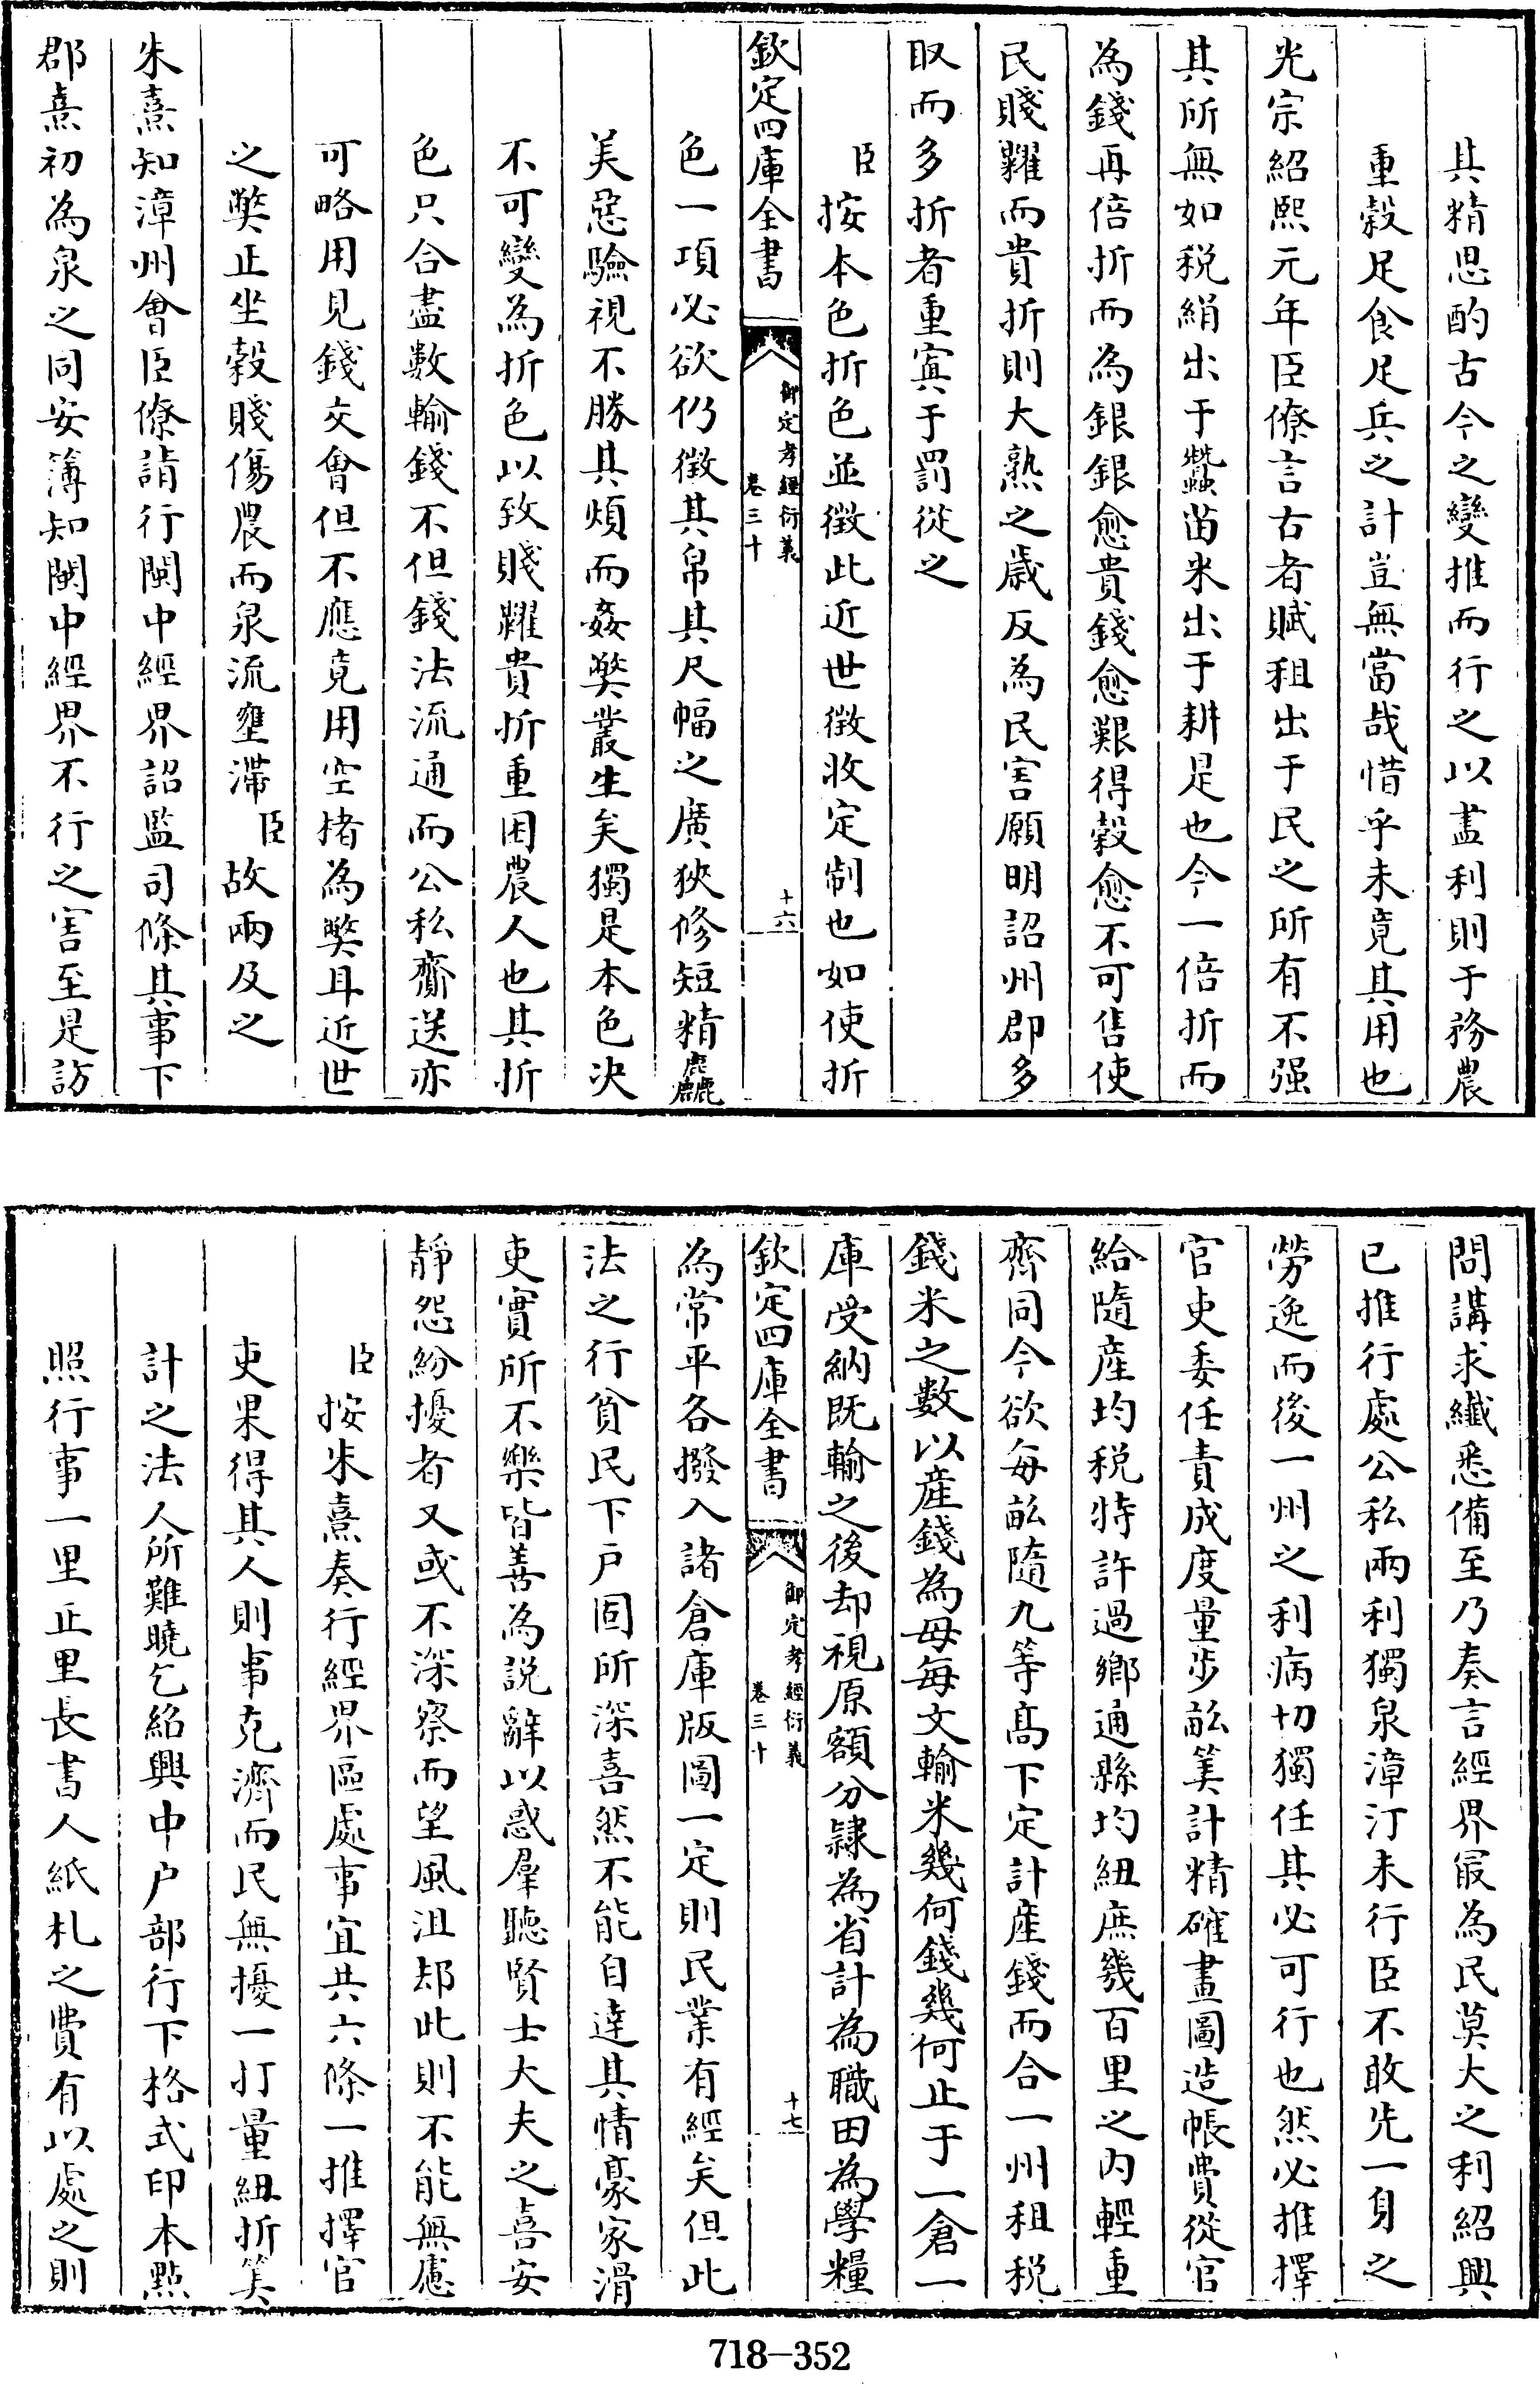 其精思酌古今之變推而行之以盡利則于務農
重穀足食足兵之計豈無當哉惜乎未竟其用也
光宗紹熙元年臣僚言古者賦租出于民之所有不强
其所無如税絹出于蠶苗米出于耕是也今一倍折而
為錢再倍折而為銀銀愈貴錢愈艱得穀愈不可售使
民賤糶而貴折則大熟之歲反為民害願明詔州郡多
取而多折者重寘于罰從之
臣按本色折色並徴此近世徴收定制也如使折
欽定四庫全書
御定孝經衍義
卷三十
十六
色一項必欲仍徴其帛其尺幅之廣狹修短精麤
美惡驗視不勝其煩而姦弊叢生矣獨是本色决
不可變為折色以致賤糶貴折重困農人也其折
色只合盡數輸錢不但錢法流通而公私齎送亦
可略用見錢交㑹但不應竟用空楮為弊耳近世
之弊正坐穀賤傷農而泉流壅滯臣故兩及之
朱熹知漳州㑹臣僚請行閩中經界詔監司條其事下
郡熹初為泉之同安簿知閩中經界不行之害至是訪
問講求纖悉備至乃奏言經界最為民莫大之利紹興
已推行處公私兩利獨泉漳汀未行臣不敢先一身之
勞逸而後一州之利病切獨任其必可行也然必推擇
官吏委任責成度量步畝筭計精確畫圖造帳費從官
給隨産均税特許過鄉通縣均紐庶幾百里之内輕重
齊同今欲每畝隨九等髙下定計産錢而合一州租税
錢米之數以産錢為母每文輸米幾何錢幾何止于一倉一
庫受納既輸之後却視原額分隸為省計為職田為學糧
欽定四庫全書
御定孝經衍義
卷三十
十七
為常平各撥入諸倉庫版圖一定則民業有經矣但此
法之行貧民下户固所深喜然不能自達其情豪家滑
吏實所不樂皆善為説辭以惑羣聽賢士大夫之喜安
靜怨紛擾者又或不深察而望風沮却此則不能無慮
臣按朱熹奏行經界區處事宜共六條一推擇官
吏果得其人則事克濟而民無擾一打量紐折筭
計之法人所難曉乞紹興中户部行下格式印本㸃
照行事一里正里長書人紙札之費有以處之則
718-352